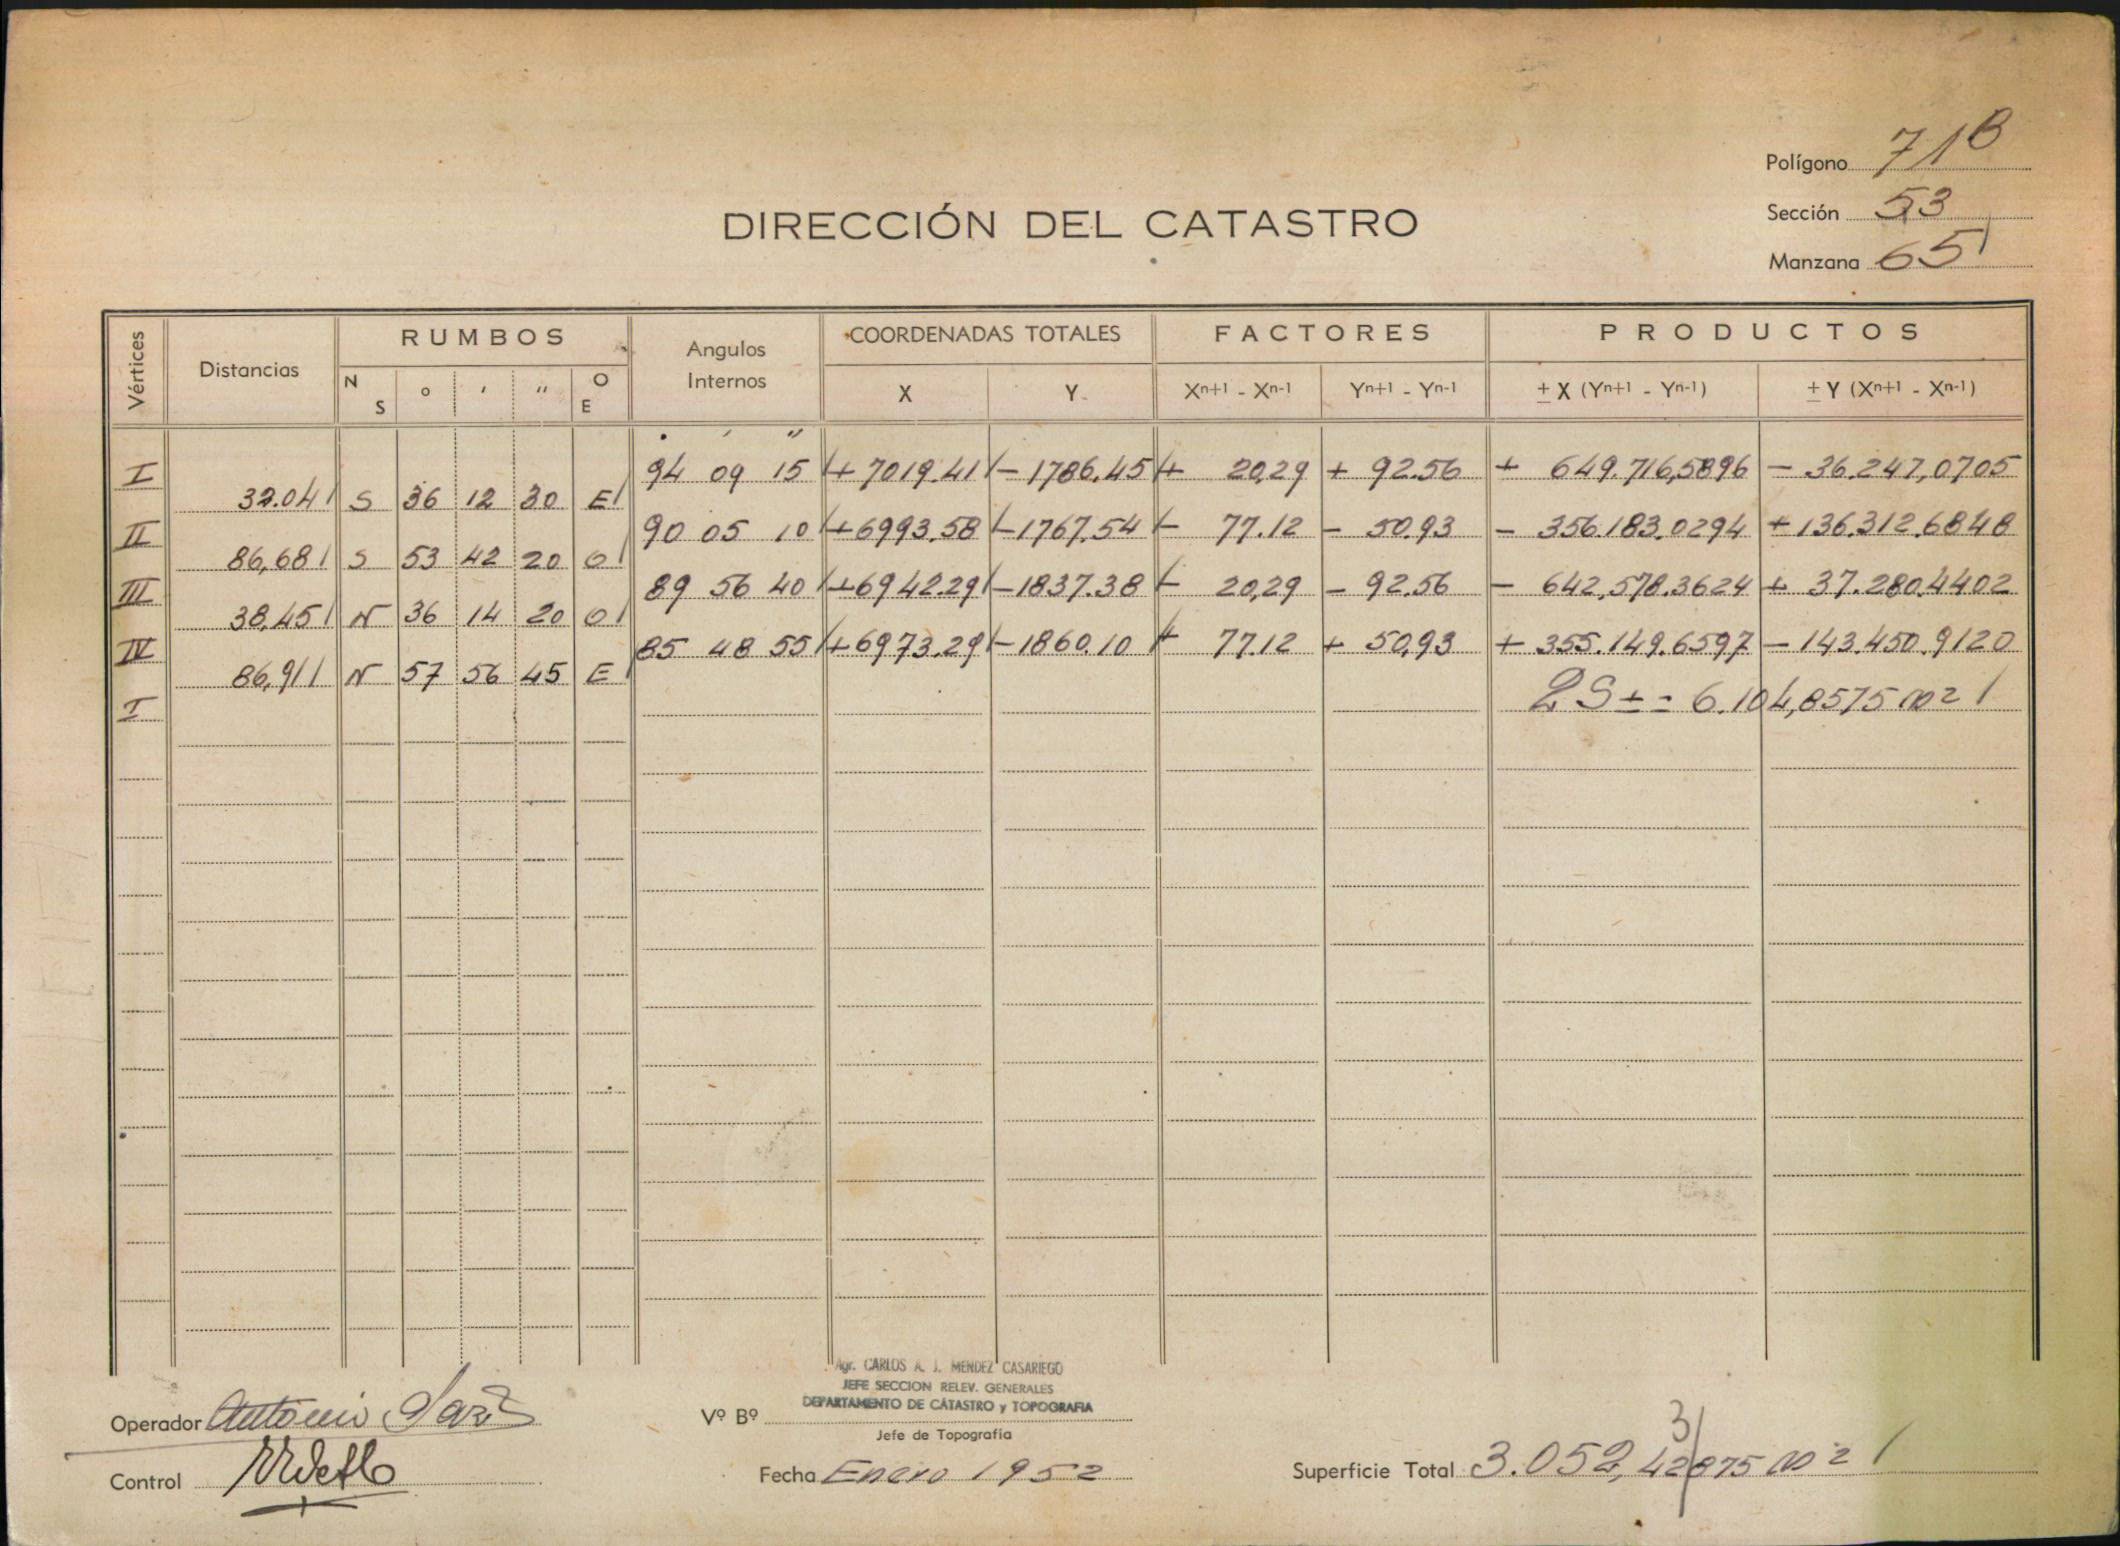 Polígono 71B
Sección 53
DIRECCIÓN DEL CATASTRO
Manzana 65
Vértices Distancias RUMBOS Angulos Internos COORDENADAS TOTALES FACTORES PRODUCTOS
N S ° ' " O E X Y Xn+1 - Xn-1 Yn+1 - Yn-1 ± X (Yn+1 - Yn-1) ± Y (Xn+1 - Xn-1)
° ' "
I 94 09 15 + 7019.41 - 1786.45 + 20,29 + 92.56 + 649.716,5896 - 36.247,0705
32.04 S 36 12 30 E
II 90 05 10 + 6993.58 - 1767.54 - 77.12 - 50.93 - 356.183.0294 + 136.312.6848
86,68 S 53 42 20 O
III 89 56 40 + 6942.29 - 1837.38 - 20,29 - 92.56 - 642,578.3624 + 37.280.4402
38,45 N 36 14 20 O
IV 85 48 55 + 6973.29 - 1860.10 + 77.12 + 50,93 + 355.149.6597 - 143.450.9120
86,91 N 57 56 45 E
I 2S ± = 6.104,8575 m2
Agr. CARLOS A. J. MENDEZ CASARIEGO
JEFE SECCION RELEV. GENERALES
DEPARTAMENTO DE CATASTRO y TOPOGRAFIA
Operador Antonio
Vº Bº
Jefe de Topografía
3
Control
Fecha Enero 1952
Superficie Total 3.052,42875 m2